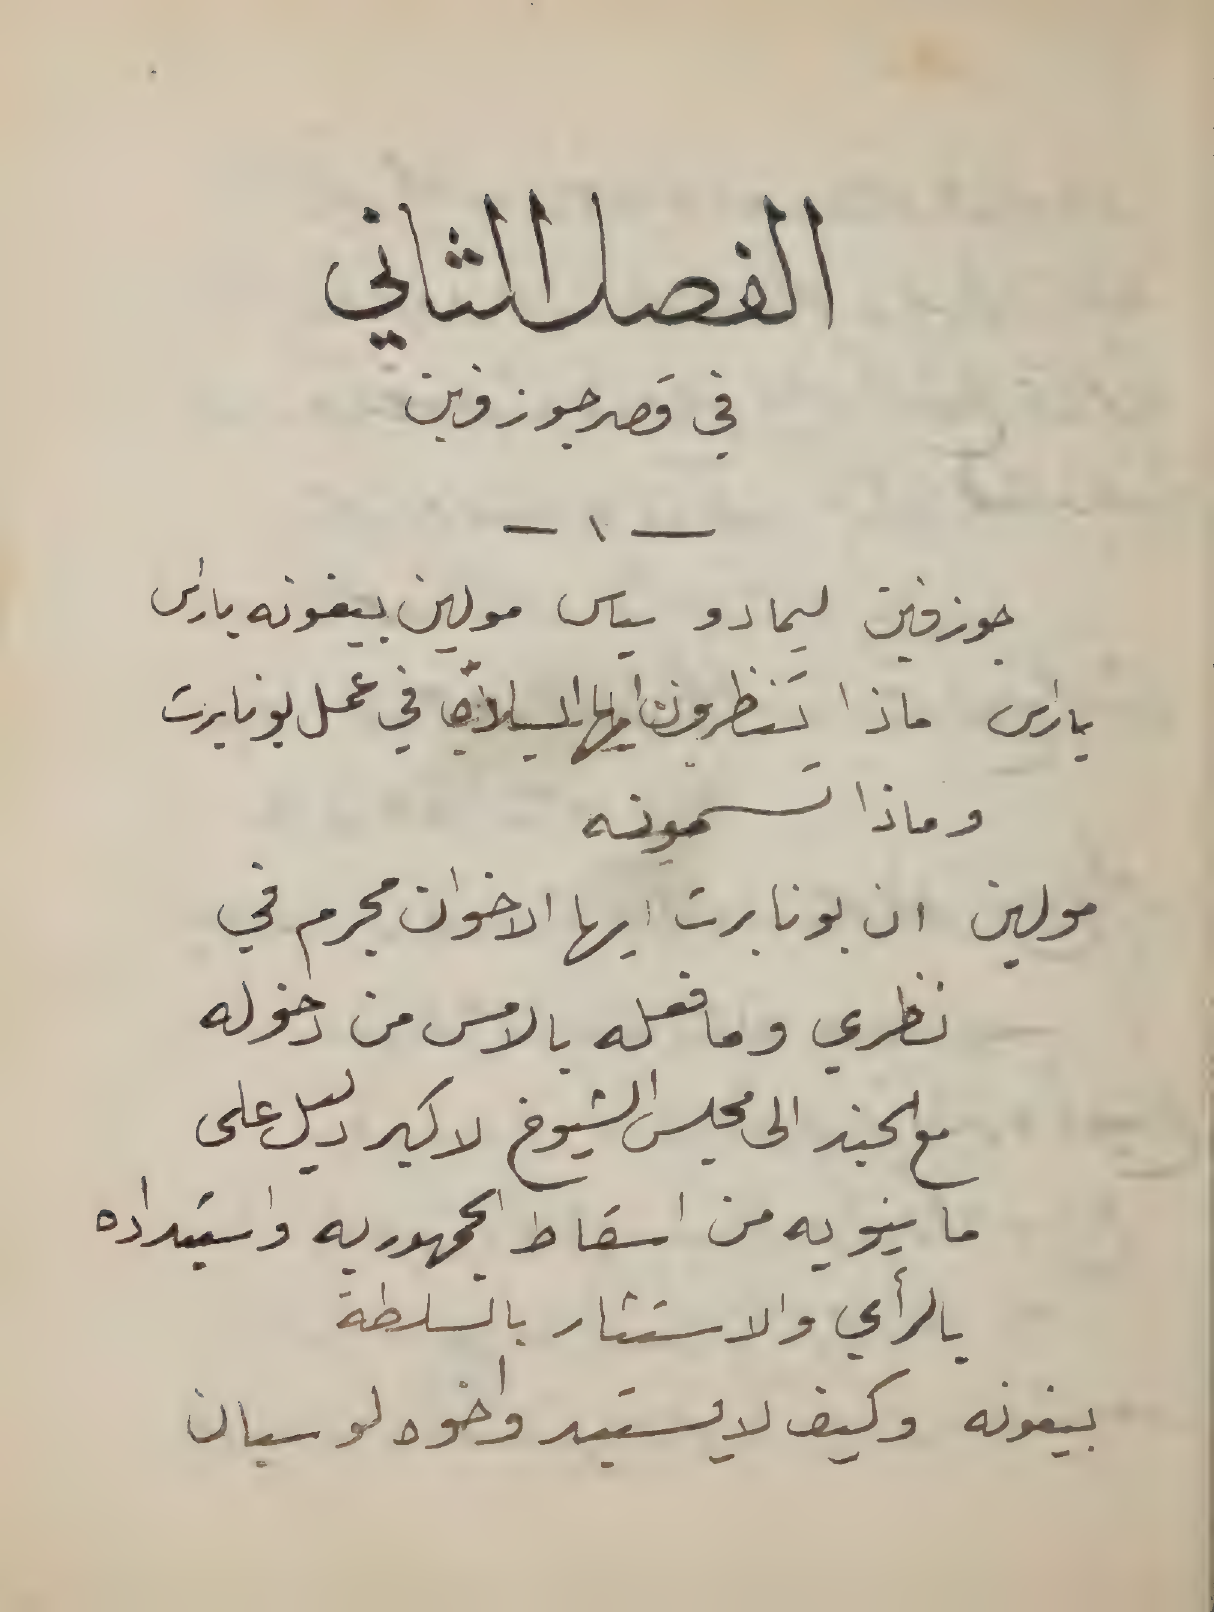 الفصل الثاني
في قصر جوزفين
— ١ —
جوزفين ليمادو سياس مولين بيغونه باراس
باراس ماذا تنظرون ايها السادة في عمل بونابرت
وماذا تسمونه
مولين ان بونابرت ايها الاخوان مجرم في
نظري وما فعله بالامس من دخوله
مع الجند الى مجلس الشيوخ لاكبر دليل على
ما ينويه من اسقاط الجمهوريه واستبداده
بالرأي والاستئثار بالسلطة
بيغونه وكيف لا يستبد واخوه لوسيان